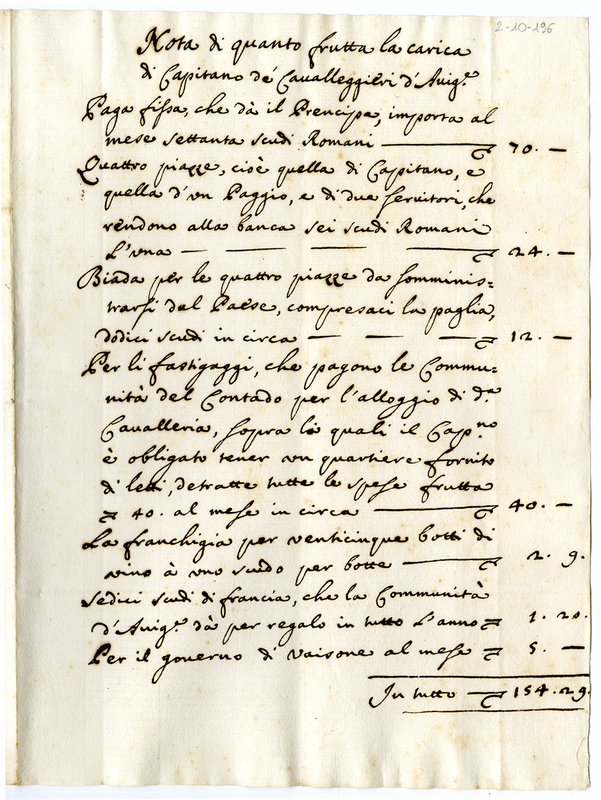 2-10-196
Nota di quanto frutta la carica
di Capitano de' Cavalleggieri d'Auig.e
Paga fissa, che dà il Prencipe, importa al
mese settanta scudi Romani — 70. —
Quattro piazze, cioè quella di Capitano, e
quella d'vn Paggio, e di due seruitori, che
rendono alla banca sei scudi Romani
L'vna — — — — 24. —
Biada per le quattro piazze da somminis=
trarsi dal Paese, compresaci la paglia,
dodici scudi in circa — — — 12. —
Per li fastigaggi, che pagono le Commu=
nità del Contado per l'alloggio di d.a
Cavalleria, sopra li quali il Cap.no
è obligato tener vn quartiere fornito
di letti, detratte tutte le spese frutta
40. al mese in circa — 40. —
La franchigia per venticinque botti di
vino à vno scudo per botte — 2. 9.
Sedici scudi di francia, che la Communità
d'Auig.e dà per regalo in tutto L'anno 1. 20.
Per il governo di Vaisone al mese 5. —
In tutto — 154. 29.